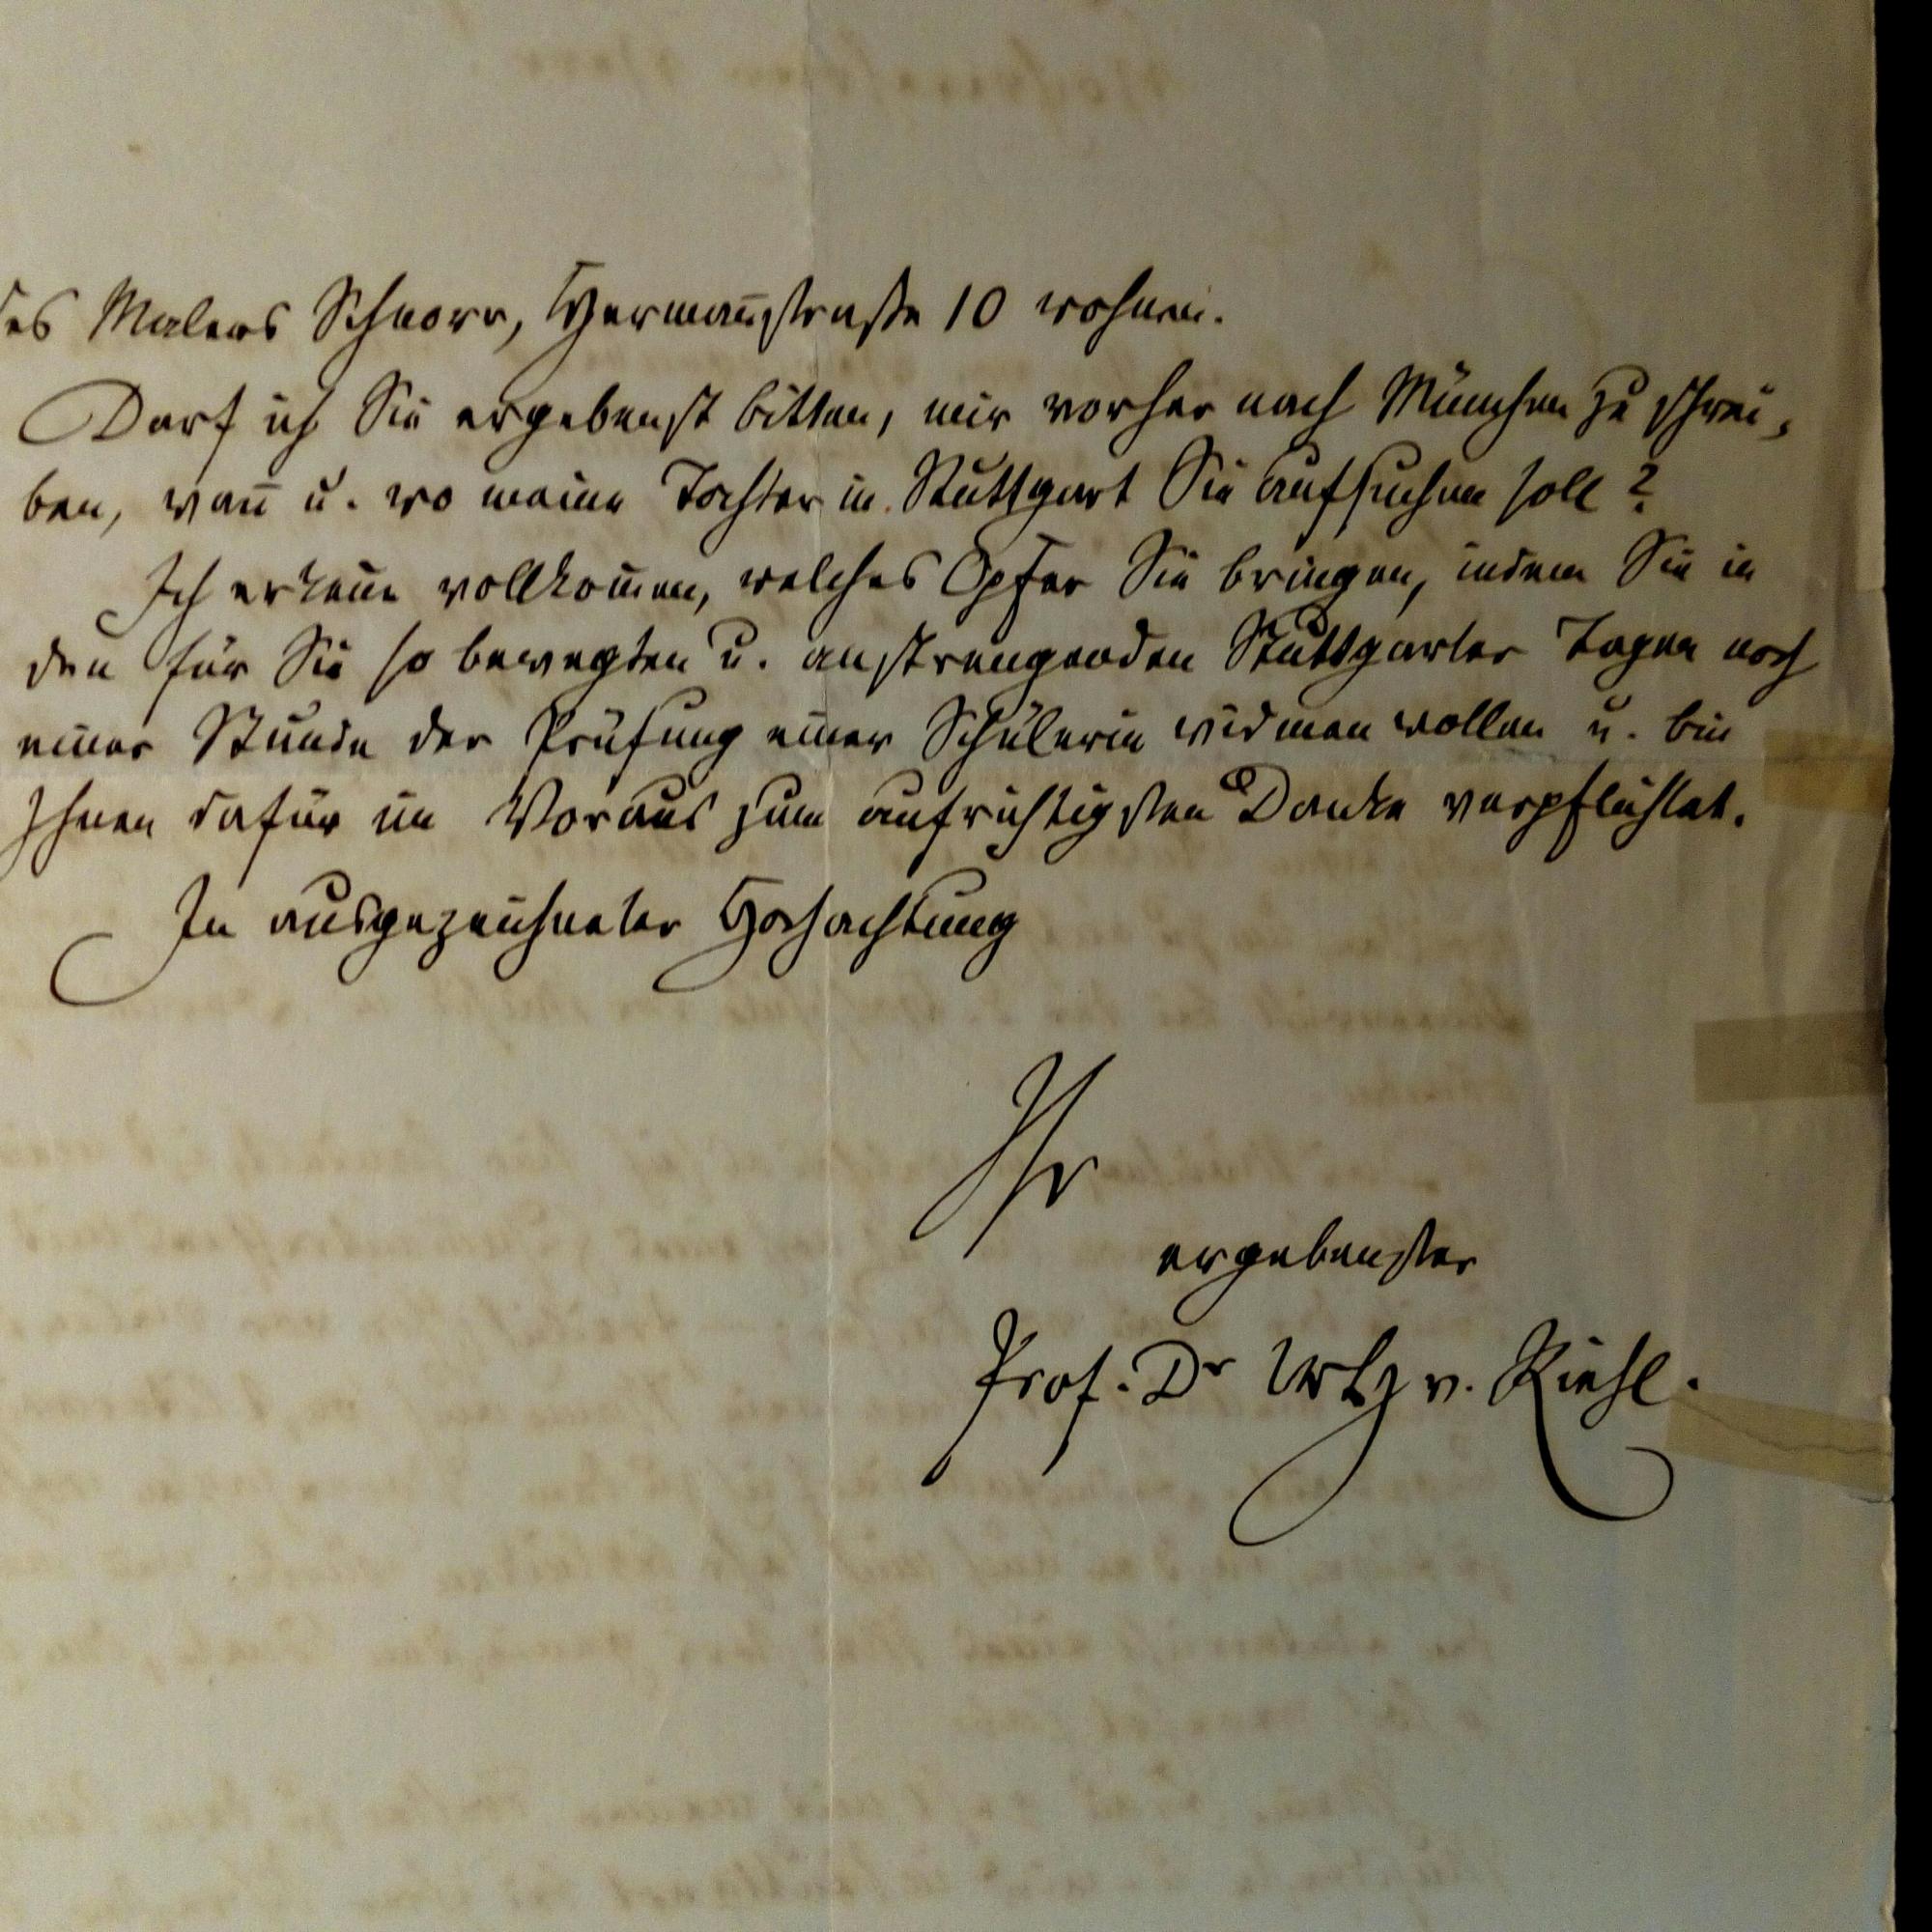 des Malers Schnorr, Hermañstraße 10 wohnen.
Darf ich Sie ergebenst bitten, mir vorher nach München zu schrei-
ben, wañ u. wo meine Tochter in Stuttgart Sie aufsuchen soll?
Ich erkeñe vollkom̄en, welches Opfer Sie bringen, indem Sie in
den für Sie so bewegten u. anstrengenden Stuttgarter Tagen noch
einer Stunde der Prüfung einer Schülerin widmen wollen u. bin
Ihnen dafür im Voraus zum aufrichtigsten Danke verpflichtet.
In ausgezeichneter Hochachtung
Ihr
ergebenster
Prof. Dr v. Riehl.